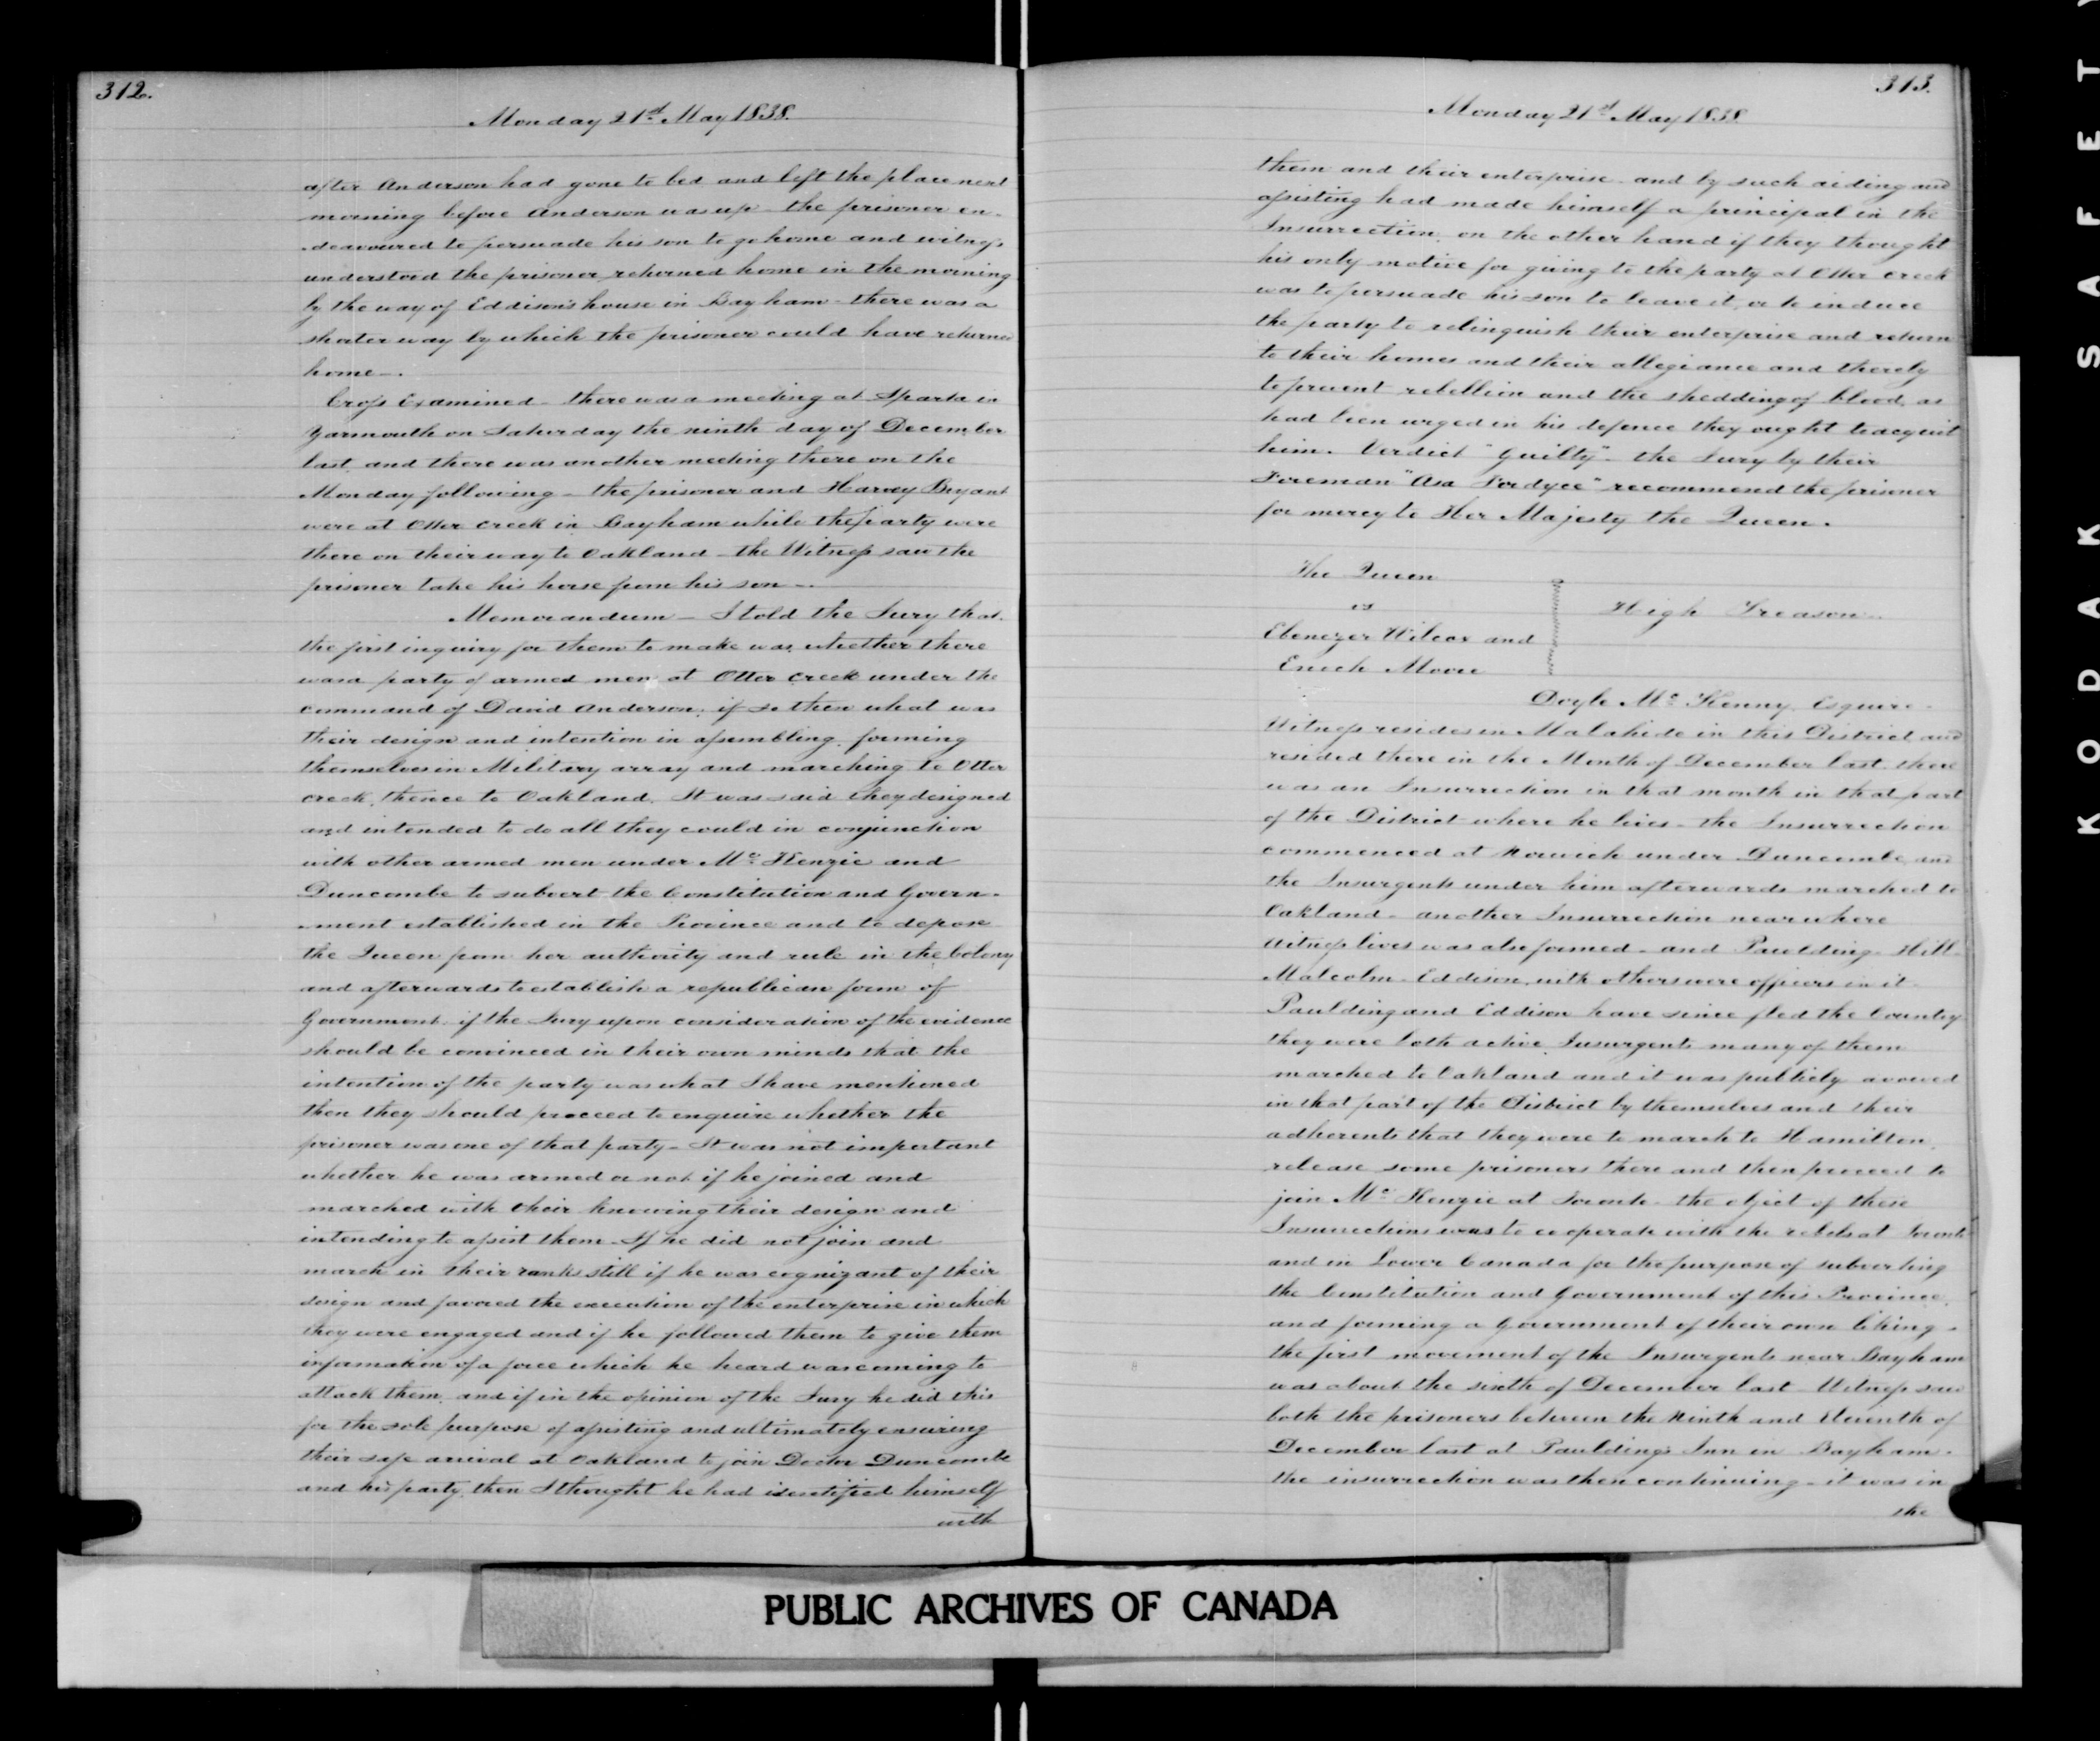 312.
Monday 21st May 1838.
after Anderson had gone to bed and left the place next
morning before Anderson was up - the prisoner en-
-deavoured to persuade his son to go home and witness
understood the prisoner returned home in the morning
by the way of Eddison's house in Bayham - there was a
shorter way by which the prisoner could have returned
home -.
Cross Examined - there was a meeting at Sparta in
Yarmouth on Saturday the ninth day of December
last, and there was another meeting there on the
Monday following - the prisoner and Harvey Bryant
were at Otter Creek in Bayham while the party were
there on their way to Oakland - the Witness saw the
prisoner take his horse from his son -.
Memorandum - I told the Jury that
the first inquiry for them to make was, whether there
was a party of armed men at Otter Creek under the
command of David Anderson; if so then what was
their design and intention in assembling, forming
themselves in Military array and marching to Otter
creek, thence to Oakland. It was said they designed
and intended to do all they could in conjunction
with other armed men under Mc Kenzie and
Duncombe to subvert the Constitution and Govern-
-ment established in the Province and to depose
the Queen from her authority and rule in the Colony
and afterwards to establish a republican form of
Government, if the Jury upon consideration of the evidence
should be convinced in their own minds that the
intention of the party was what I have mentioned
then they should proceed to enquire whether the
prisoner was one of that party - It was not important
whether he was armed or not if he joined and
marched with their knowing their design and
intending to assist them - If he did not join and
march in their ranks still if he was cognizant of their
design and favored the execution of the enterprise in which
they were engaged and if he followed them to give them
information of a force which he heard was coming to
attack them, and if in the opinion of the Jury he did this
for the sole purpose of assisting and ultimately ensuring
their safe arrival at Oakland to join Doctor Duncombe
and his party, then I thought he had identified himself
with
313.
Monday 21st May 1838
them and their enterprise and by such aiding and
assisting had made himself a principal in the
Insurrection, on the other hand if they thought
his only motive for going to the party at Otter Creek
was to persuade his son to leave it, or to induce
the party to relinquish their enterprise and return
to their homes and their allegiance and thereby
to prevent rebellion and the shedding of blood, as
had been urged in his defence they ought to acquit
him. Verdict "Guilty" - the Jury by their
Foreman "Asa Fordyce" recommend the prisoner
for mercy to Her Majesty the Queen.
The Queen
vs
Ebenezer Wilcox and
Enoch Moore
High Treason
Doyle Mc Kenny, Esquire -
Witness resides in Malahide in this District and
resided there in the Month of December last, there
was an Insurrection in that month in that part
of the District where he lives - the Insurrection
commenced at Norwich under Duncombe, and
the Insurgents under him afterwards marched to
Oakland - another Insurrection near where
Witness lives was also formed - and Paulding - Hill
Malcolm - Eddison, with others were officers in it -
Paulding and Eddison have since fled the Country
they were both active Insurgents many of them
marched to Oakland and it was publicly avowed
in that part of the District by themselves and their
adherents that they were to march to Hamilton,
release some prisoners there and then proceed to
join Mc Kenzie at Toronto - the object of these
Insurrections was to co operate with the rebels at Toronto
and in Lower Canada for the purpose of subverting
the Constitution and Government of this Province,
and forming a Government of their own liking -
the first movement of the Insurgents near Bayham
was about the sixth of December last - Witness saw
both the prisoners between the Ninth and Eleventh of
December last at Pauldings Inn in Bayham -
the insurrection was then continuing - it was in
the
PUBLIC ARCHIVES OF CANADA
KODAK SAFETY